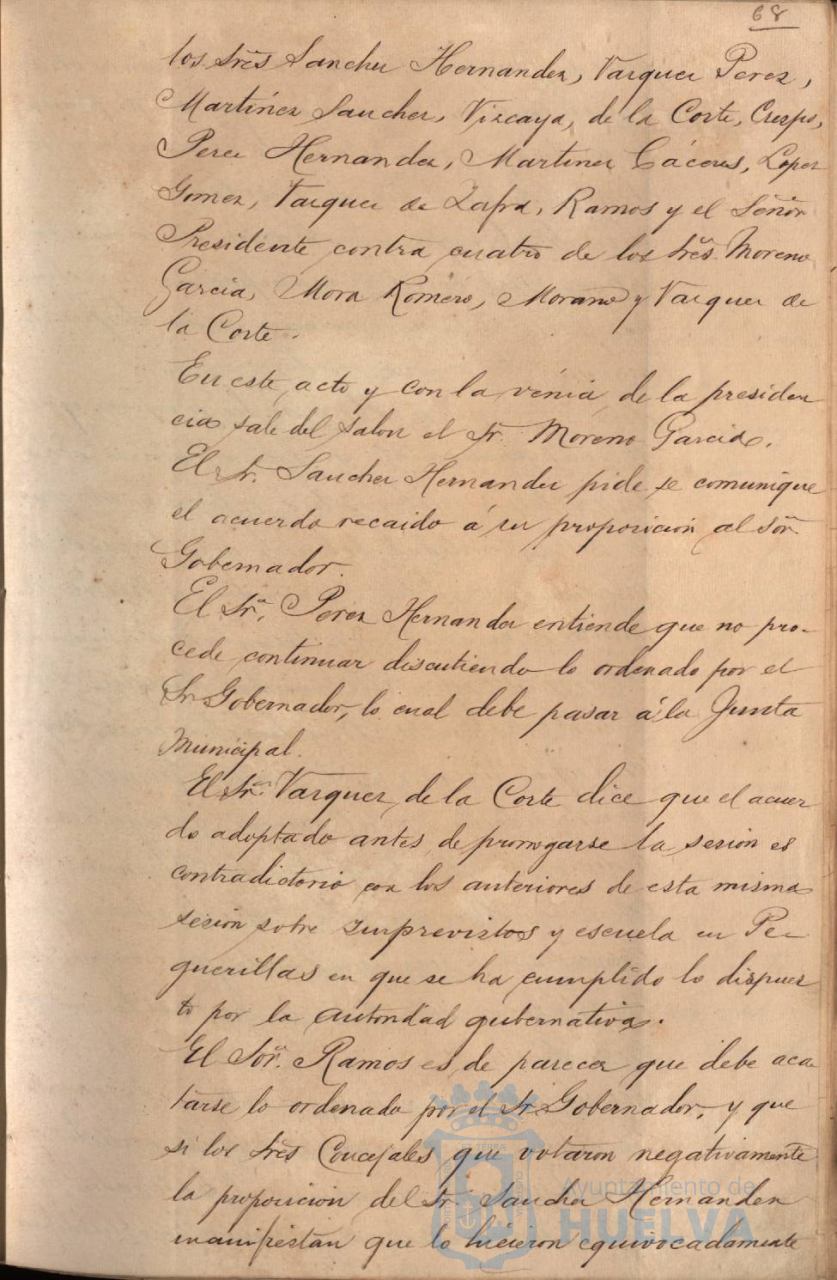 68
los Srēs Sanchez Hernandez, Vazquez Perez,
Martínez Sanchez, Vizcaya, de la Corte, Crespo,
Perez Hernandez, Martinez Cáceres, Lopez
Gomez, Vazquez de Zafra, Ramos y el Señor
Presidente contra cuatro de los Srēs. Moreno
García, Mora Romero, Morano y Vazquez de
la Corte.
En este acto y con la vénia de la presiden
cia sale del salon el Sr. Moreno Garcia.
El Sr. Sanchez Hernandez pide se comunique
el acuerdo recaido á su proposicion al Sor.
Gobernador.
El Sr. Perez Hernandez entiende que no pro-
cede continuar discutiendo lo ordenado por el
Sr Gobernador, lo cual debe pasar á la Junta
Municipal.
El Sr. Vazquez de la Corte dice que el acuer
do adoptado antes de prorrogarse la sesion es
contradictorio con los anteriores de esta misma
sesion sobre imprevistos y escuela en Pe-
guerillas en que se ha cumplido lo dispues
to por la autoridad gubernativa.
El Sor. Ramos es de parecer que debe aca
tarse lo ordenado por el Sr. Gobernador, y que
si los Srēs Concejales que votaron negativamente
la proposicion del Sr. Sanchez Hernandez
manifiestan que lo hicieron equivocadamente
Ayuntamiento de
HUELVA